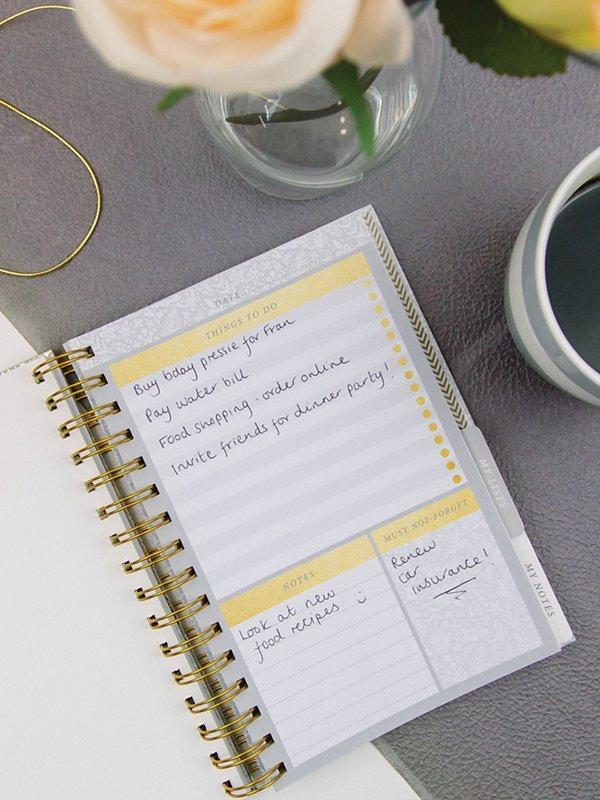 DATE
THINGS TO DO
Buy bday pressie for Fran
Pay water bill
Food shopping - order online
Invite friends for dinner party!
NOTES
Look at new
food recipes :)
MUST NOT FORGET
Renew
car
insurance!
MY LISTS
MY NOTES